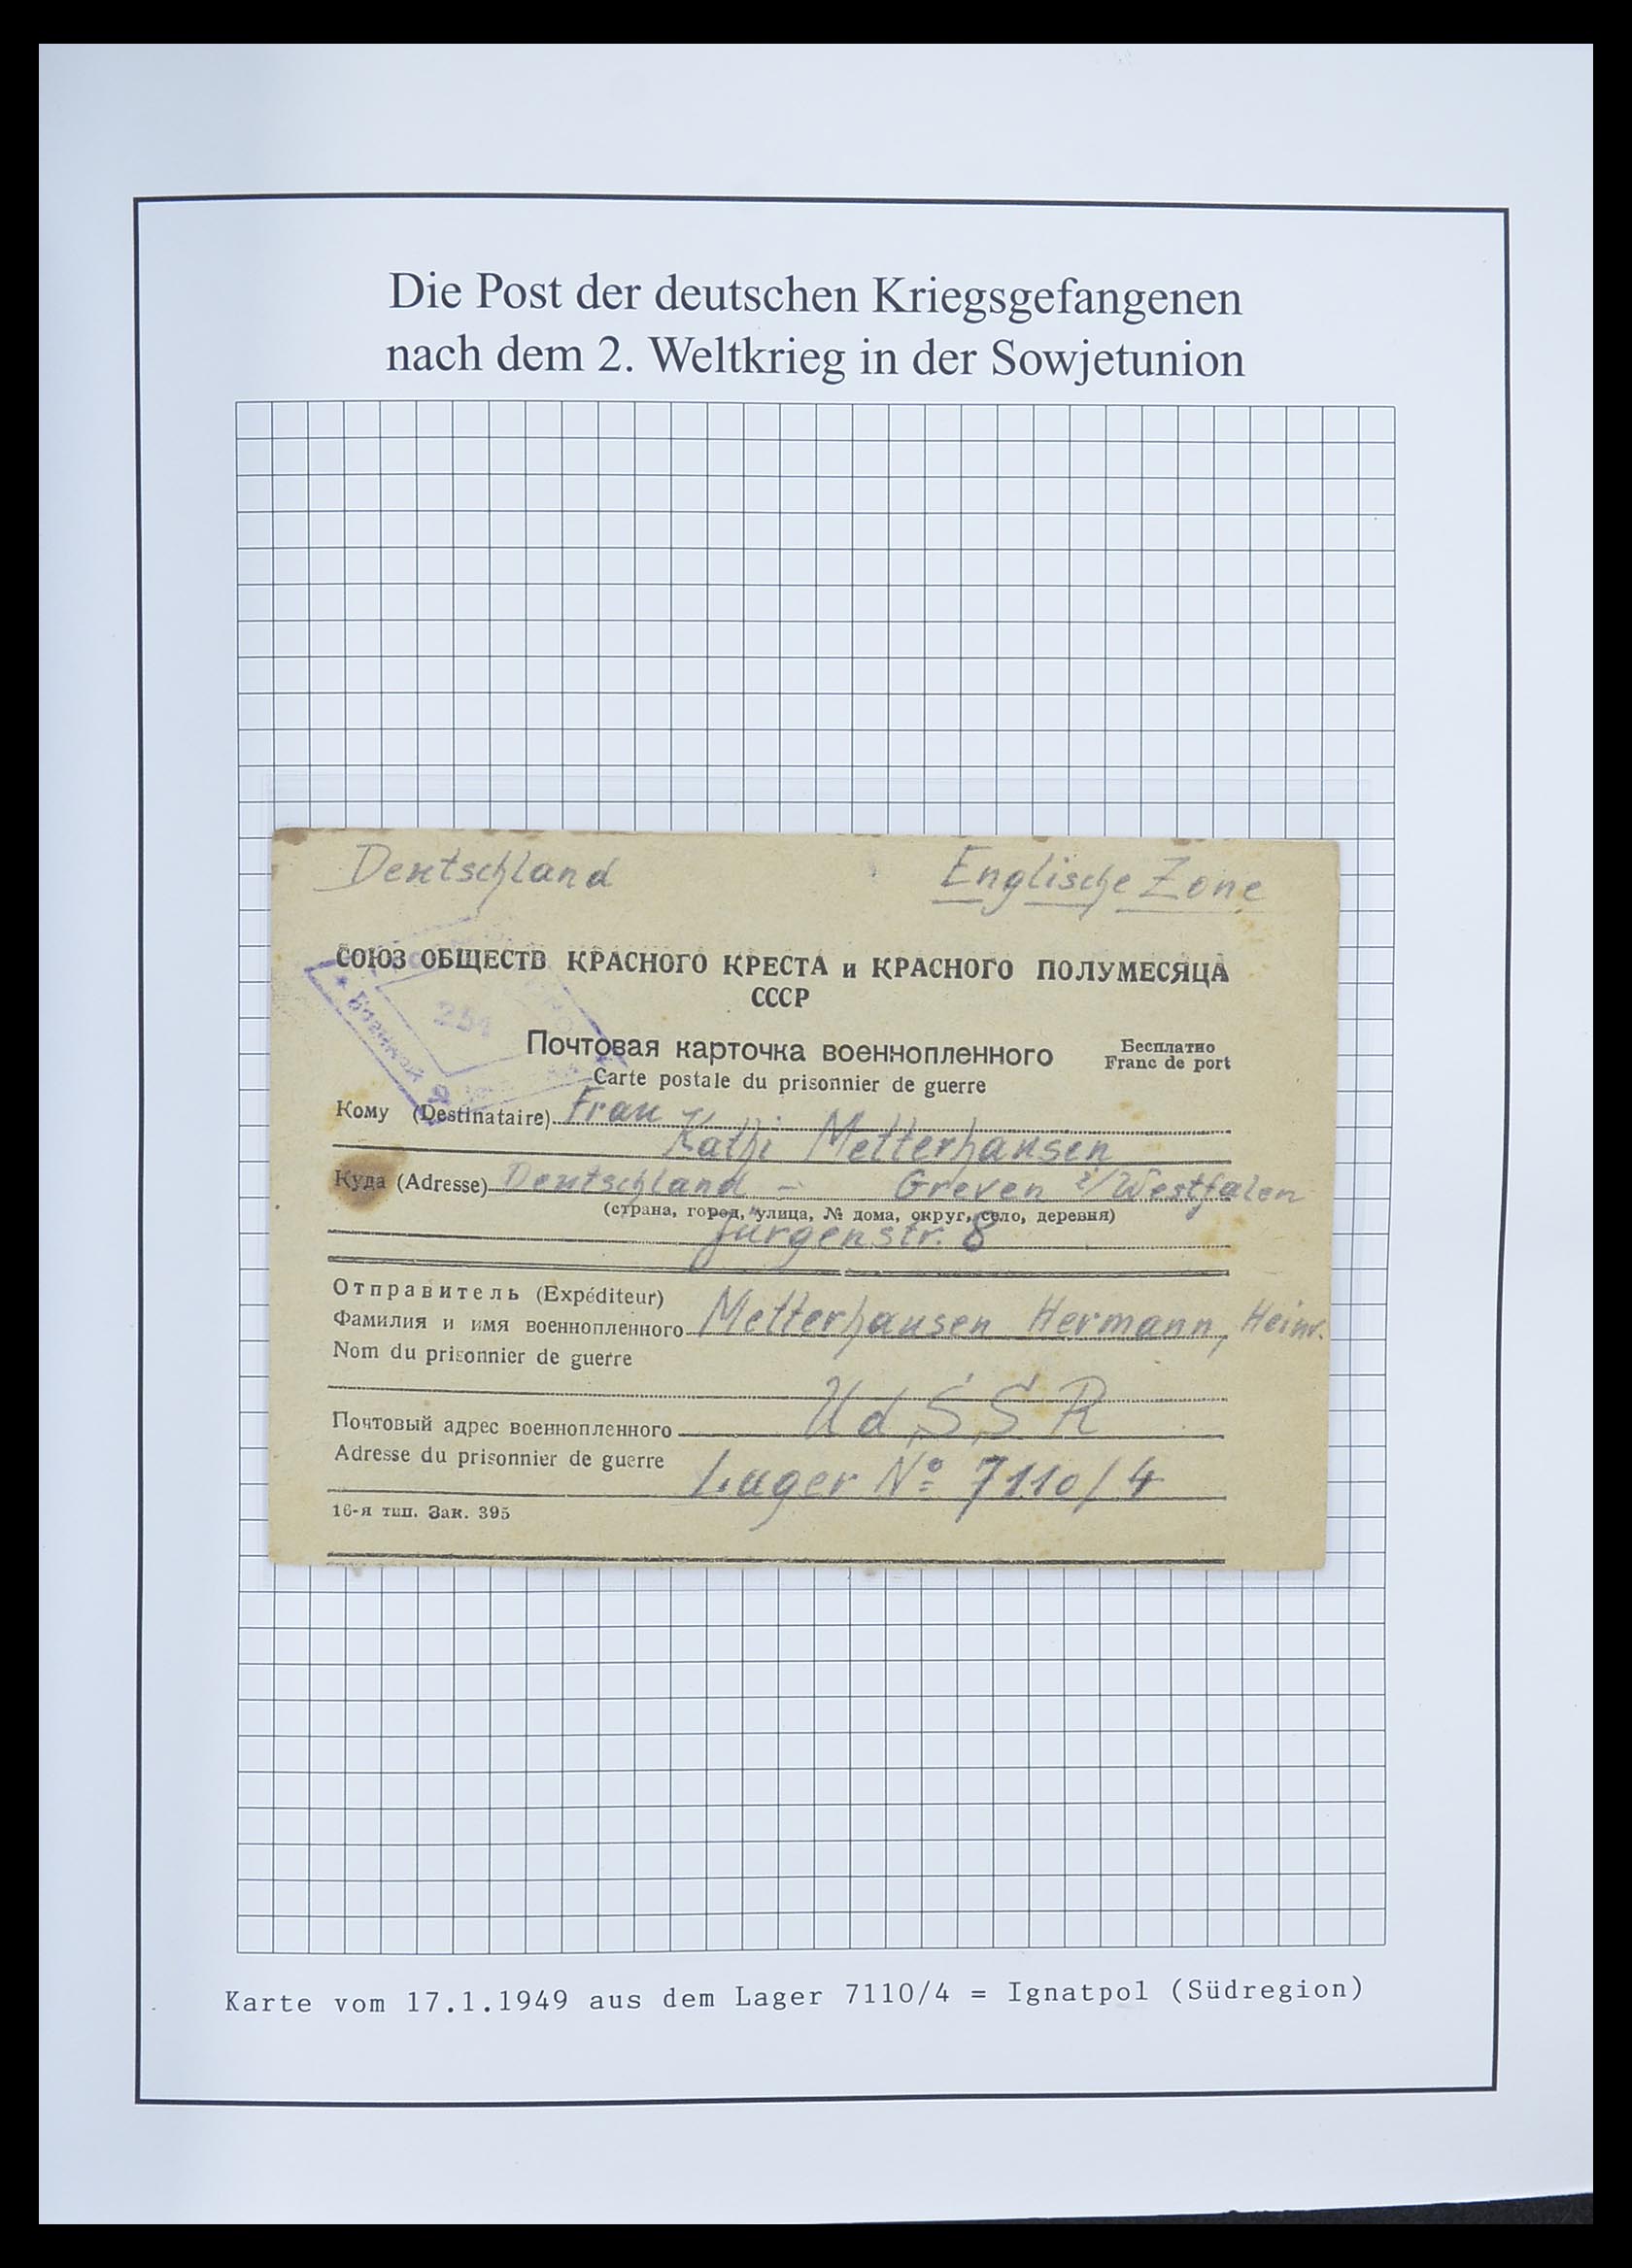 Die Post der deutschen Kriegsgefangenen
nach dem 2. Weltkrieg in der Sowjetunion
Deutschland Englische Zone
СОЮЗ ОБЩЕСТВ КРАСНОГО КРЕСТА и КРАСНОГО ПОЛУМЕСЯЦА
СССР
Почтовая карточка военнопленного
Бесплатно
Franc de port
Carte postale du prisonnier de guerre
Кому (Destinataire) Frau
Käthi Metterhausen
Куда (Adresse) Deutschland – Greven i/Westfalen
(страна, город, улица, № дома, округ, село, деревня)
Jürgenstr. 8
Отправитель (Expéditeur)
Фамилия и имя военнопленного Metterhausen Hermann, Heinr.
Nom du prisonnier de guerre
UdSSR
Почтовый адрес военнопленного
Adresse du prisonnier de guerre
Lager No 7110/4
16-я тип. Зак. 395
Karte vom 17.1.1949 aus dem Lager 7110/4 = Ignatpol (Südregion)